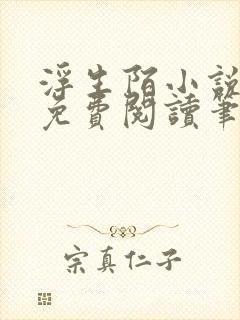 浮生陌小說
免費閱讀筆
宗真仁子